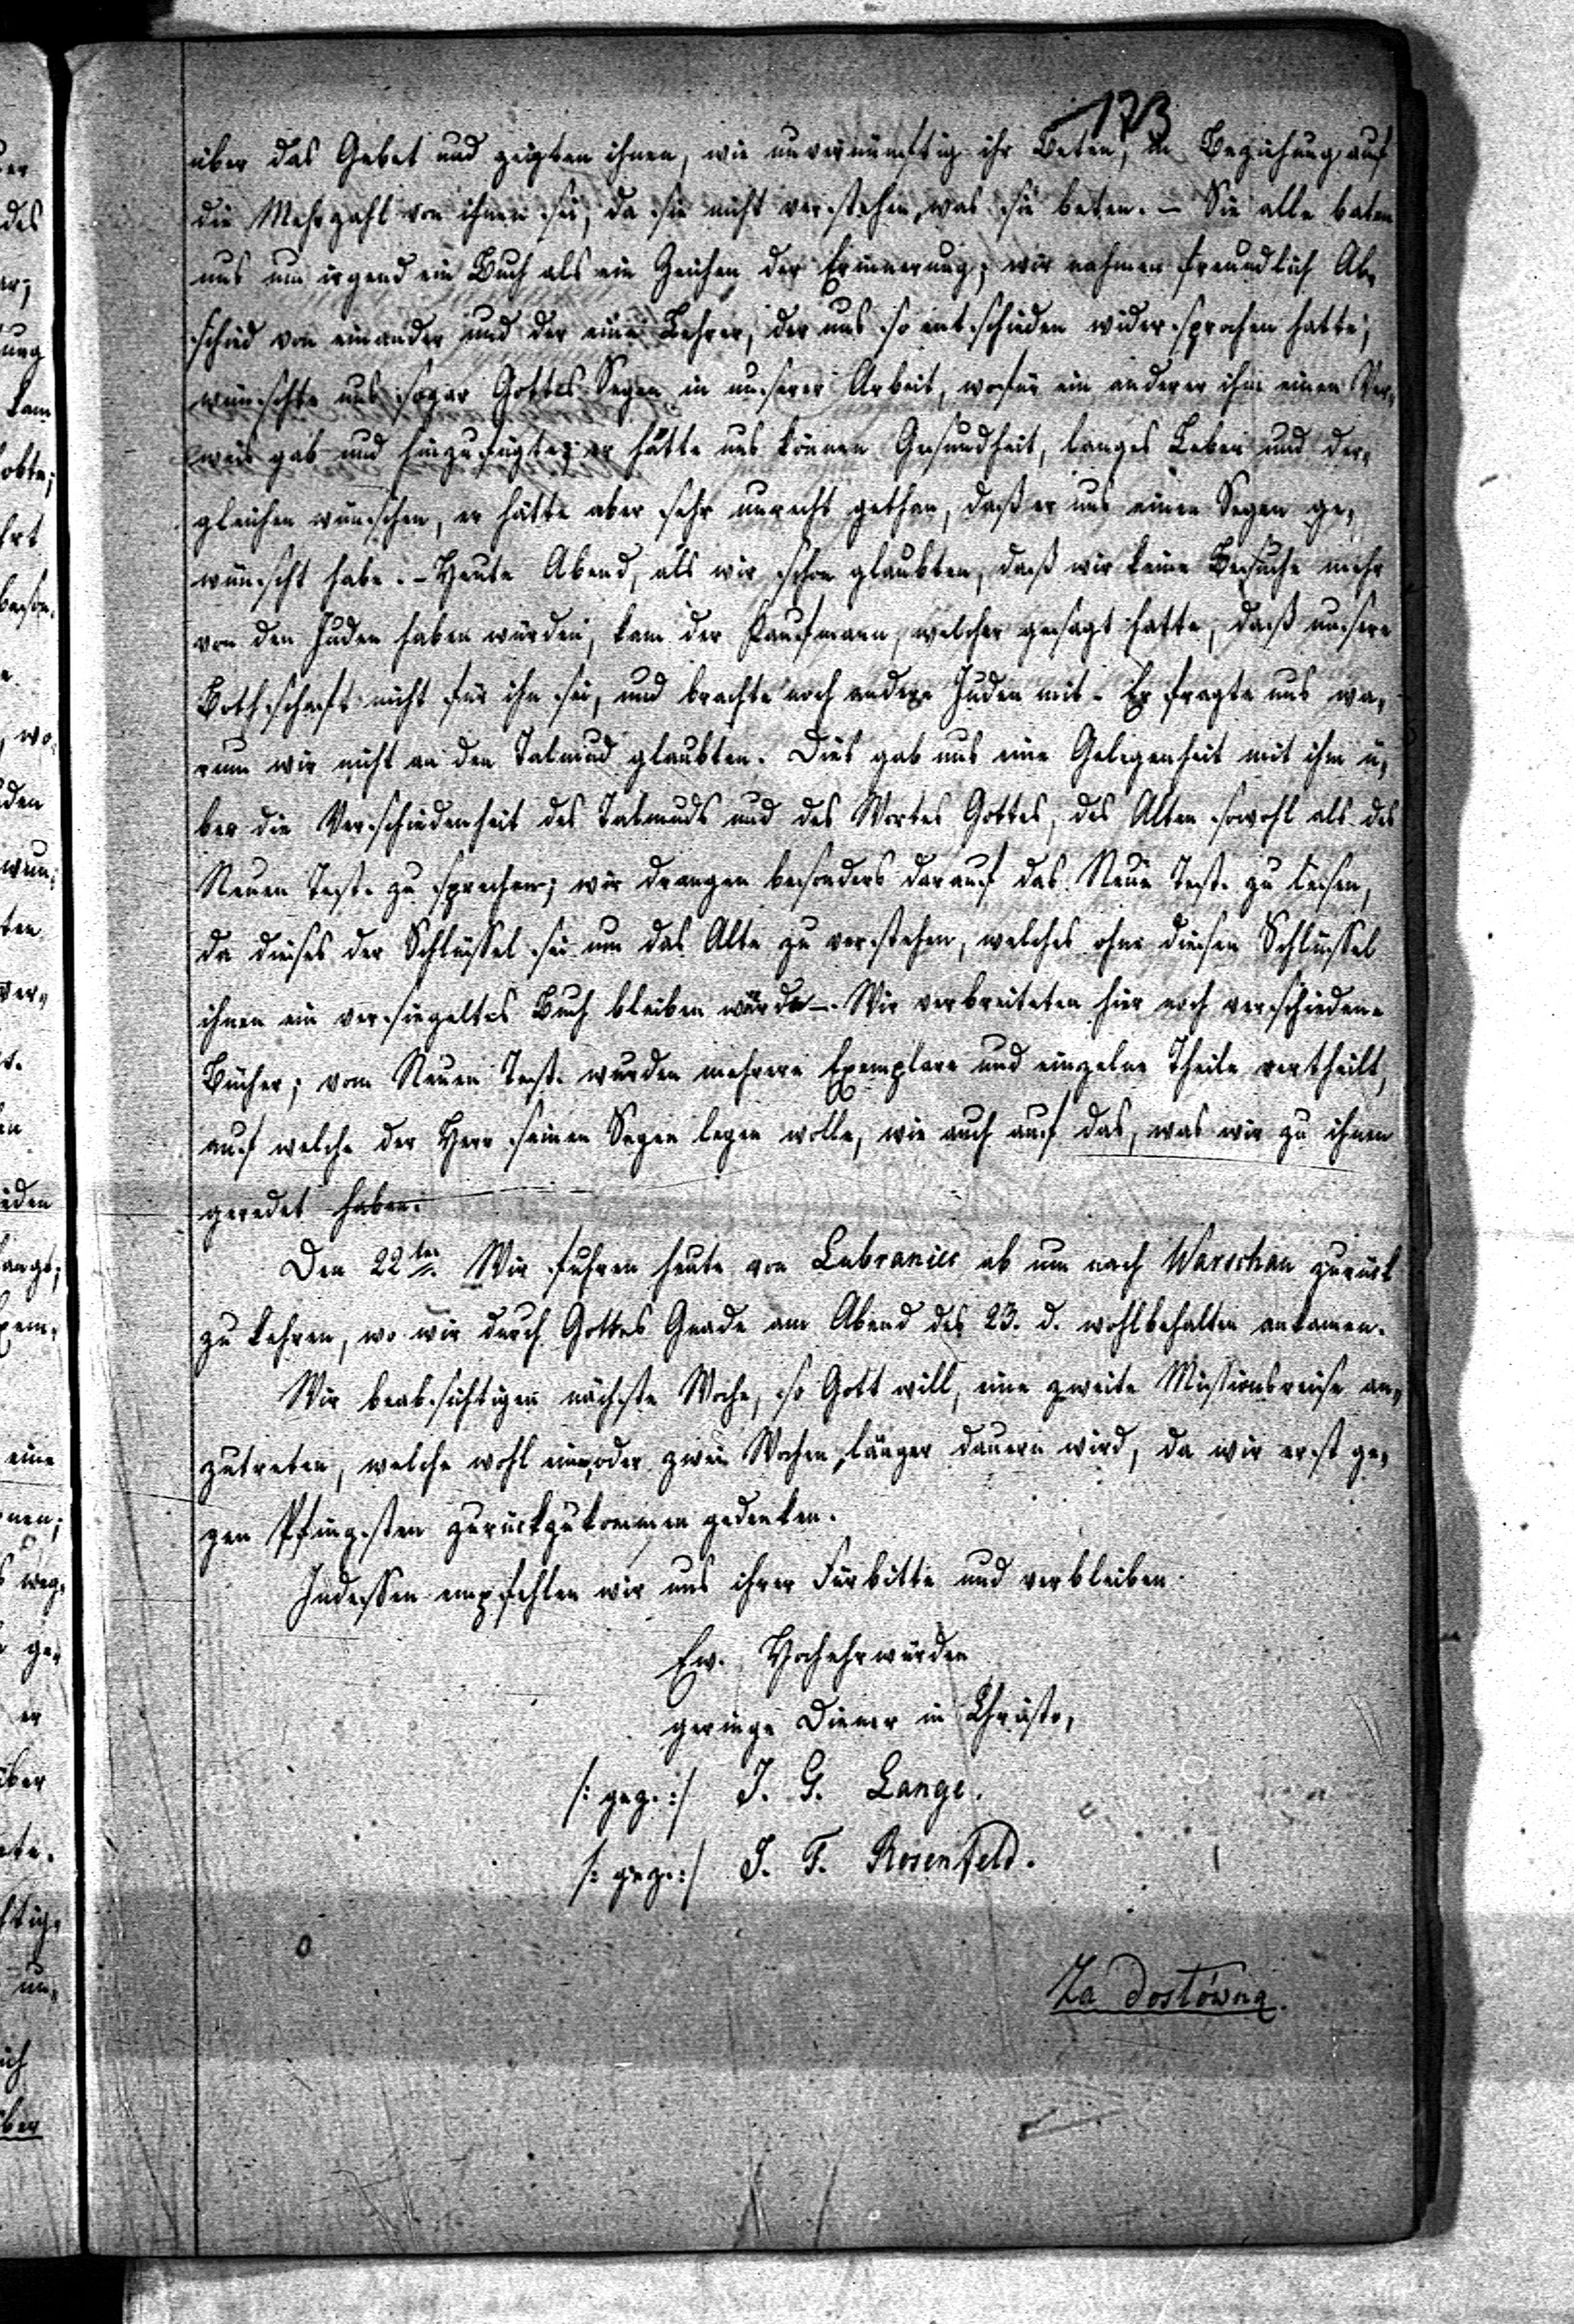 173
über das Gebet und zeigten ihnen, wie unvernünftig ihr Beten, in Beziehung auf
die Mehrzahl von ihnen sei, da sie nicht verstehen, was sie beten. – Sie alle baten
uns um irgend ein Buch als ein Zeichen der Erinnerung; wir nahmen freundlich Ab-
schied von einander und der eine Lehrer, der uns so entschieden widersprochen hatte,
wünschte uns sogar Gottes Segen in unserer Arbeit, wofür ein anderer ihm einen Ver-
weis gab und hinzufügte; er hätte uns können Gesundheit, langes Leben und der-
gleichen wünschen, er hätte aber sehr unrecht gethan, daß er uns einen Segen ge-
wünscht habe. – Heute Abend, als wir schon glaubten, daß wir keine Besuche mehr
von den Juden haben würden, kam der Kaufmann, welcher gesagt hatte, daß unsere
Bothschaft nicht für ihn sei, und brachte noch andere Juden mit. Er fragte uns wa-
rum wir nicht an den Talmud glaubten. Dies gab uns eine Gelegenheit mit ihm ü-
ber die Verschiedenheit des Talmuds und des Wortes Gottes, des Alten sowohl als des
Neuen Test. zu sprechen; wir drangen besonders darauf das Neue Test. zu lesen,
da dieses der Schlüssel sei um das Alte zu verstehen, welches ohne diesen Schlüssel
ihnen ein versiegeltes Buch bleiben würde –. Wir verbreiteten hier noch verschiedene
Bücher; vom Neuen Test. wurden mehrere Exemplare und einzelne Theile vertheilt,
auf welche der Herr seinen Segen legen wolle, wie auch auf das, was wir zu ihnen
geredet haben.
Den 22ten. Wir fuhren heute von Lubraniec ab um nach Warschau zurück
zu kehren, wo wir durch Gottes Gnade am Abend des 23. d. wohlbehalten ankamen.
Wir beabsichtigen nächste Woche, so Gott will, eine zweite Missionsreise an-
zutreten, welche wohl eine oder zwei Wochen länger dauern wird, da wir erst ge-
gen Pfingsten zurückzukommen gedenken.
Indessen empfehlen wir uns ihrer Fürbitte und verbleiben
Ew. Hochehrwürden
geringe Diener in Christo,
/: gez. :/ J. G. Lange.
/: gez. :/ J. F. Rosenfeld.
Za dosłówną.